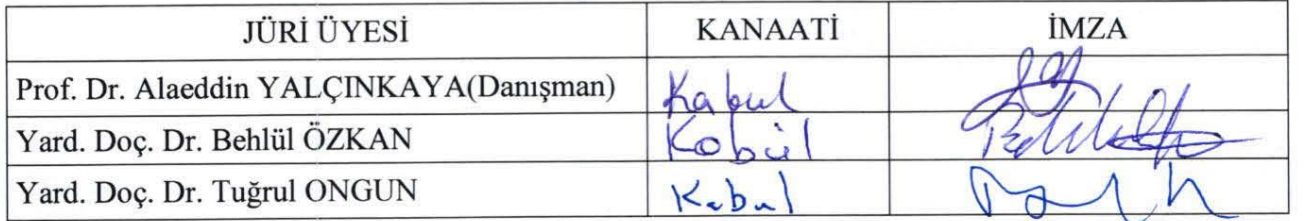 JÜRİ ÜYESİ KANAATİ İMZA
Prof. Dr. Alaeddin YALÇINKAYA(Danışman) Kabul
Yard. Doç. Dr. Behlül ÖZKAN Kabül
Yard. Doç. Dr. Tuğrul ONGUN Kabul